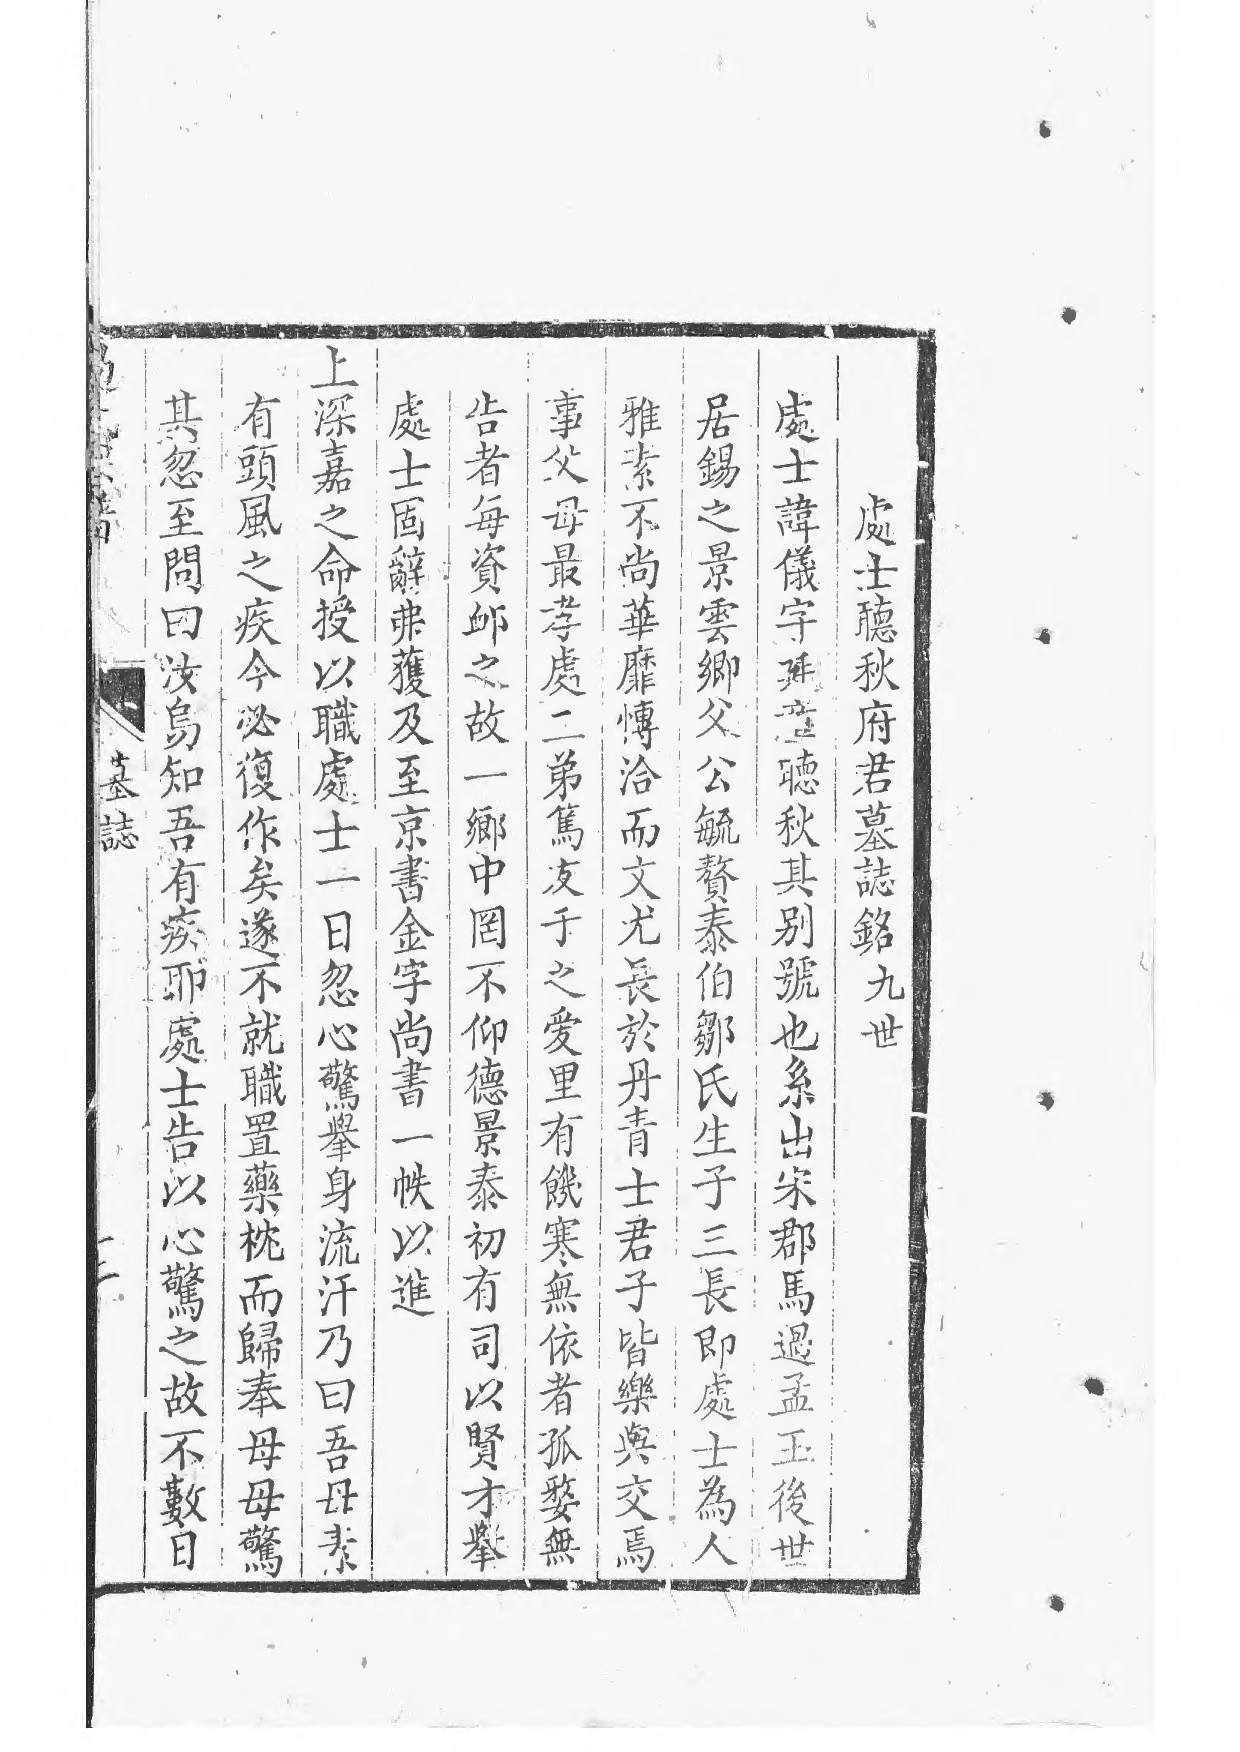 處士聽秋府君墓誌銘九世
處士諱儀字廷聽秋其別號也系出宋郡馬過孟玉後世
居錫之景雲鄉父公毓贅泰伯鄒氏生子三長即處士為人
雅素不尚華靡慱洽而文尤長於丹青士君子皆樂與交焉
事父母最孝處二弟篤友于之愛里有饑寒無依者孤嫠無
告者每資卹之故一鄉中罔不仰德景泰初有司以賢才舉
處士固辭弗獲及至京書金字尚書一帙以進
上深嘉之命授以職處士一日忽心驚舉身流汗乃曰吾母素
有頭風之疾今必復作矣遂不就職置藥枕而歸奉母母驚
其忽至問曰汝烏知吾有疾耶處士告以心驚之故不數日
墓誌